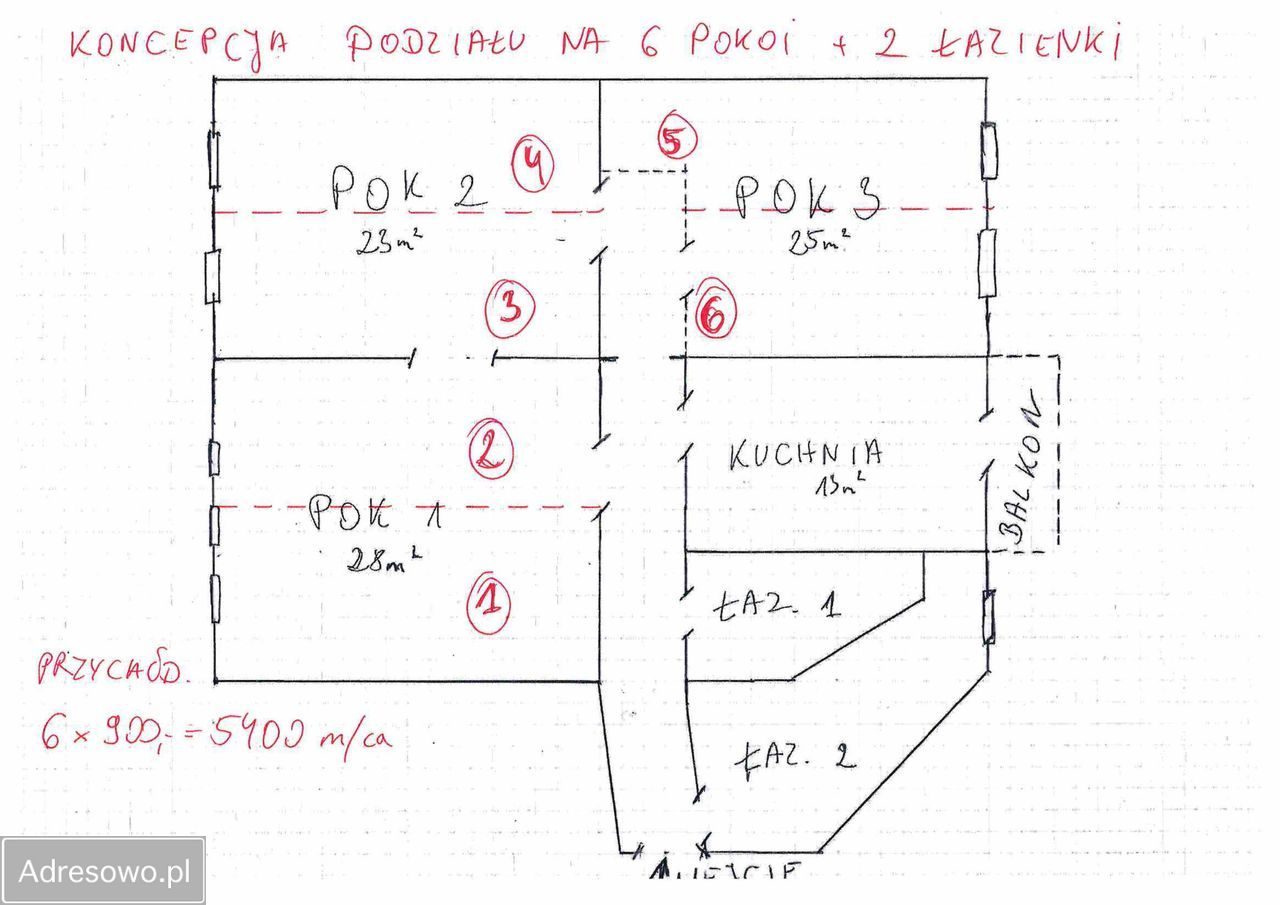 KONCEPCJA PODZIAŁU NA 6 POKOI + 2 ŁAZIENKI
5
4
POK 2
POK 3
23m²
25m²
3
6
2
KUCHNIA
13m²
BALKON
POK 1
28m²
1
ŁAZ. 1
PRZYCHÓD.
6 x 900,- = 5400 m/ca
ŁAZ. 2
Adresowo.pl